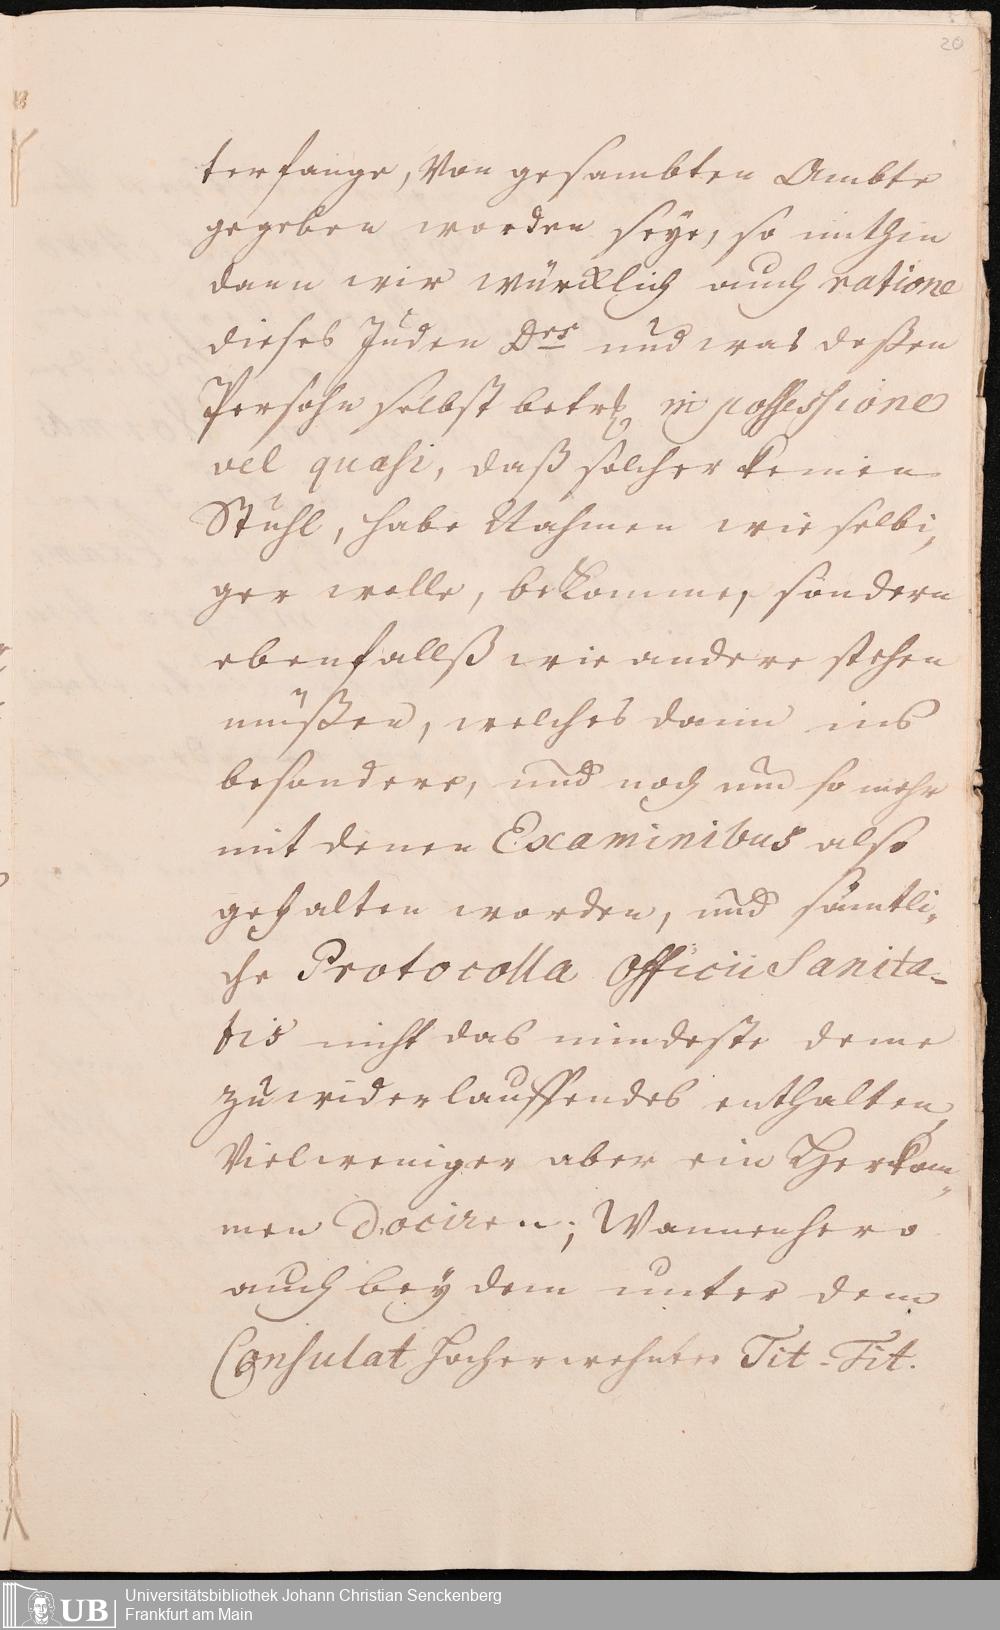 20
terfange, Von gesambten Ambte
gegeben worden seye, so mithin
dann wir würcklich auch ratione
dieses Juden Drs und was deßen
Persohn selbst betr. in possessione
vel quasi, daß solcher keinen
Stuhl, habe Nahmen wie selbi„
ger wolle, bekomme, sondern
ebenfallß wie andere stehen
müßen, welches dann ins
besondere, und noch um so mehr
mit denen Examinibus also
gehalten worden, und sämtli„
che Protocolla Officii Sanita-
tis nicht das mindeste deme
zuwiderlauffendes enthalten,
Vielweniger aber ein Herkom„
men dociren; Wannenhero
auch bey dem unter dem
Consulat hocherwehnter Tit-Tit.
UB
Universitätsbibliothek Johann Christian Senckenberg
Frankfurt am Main